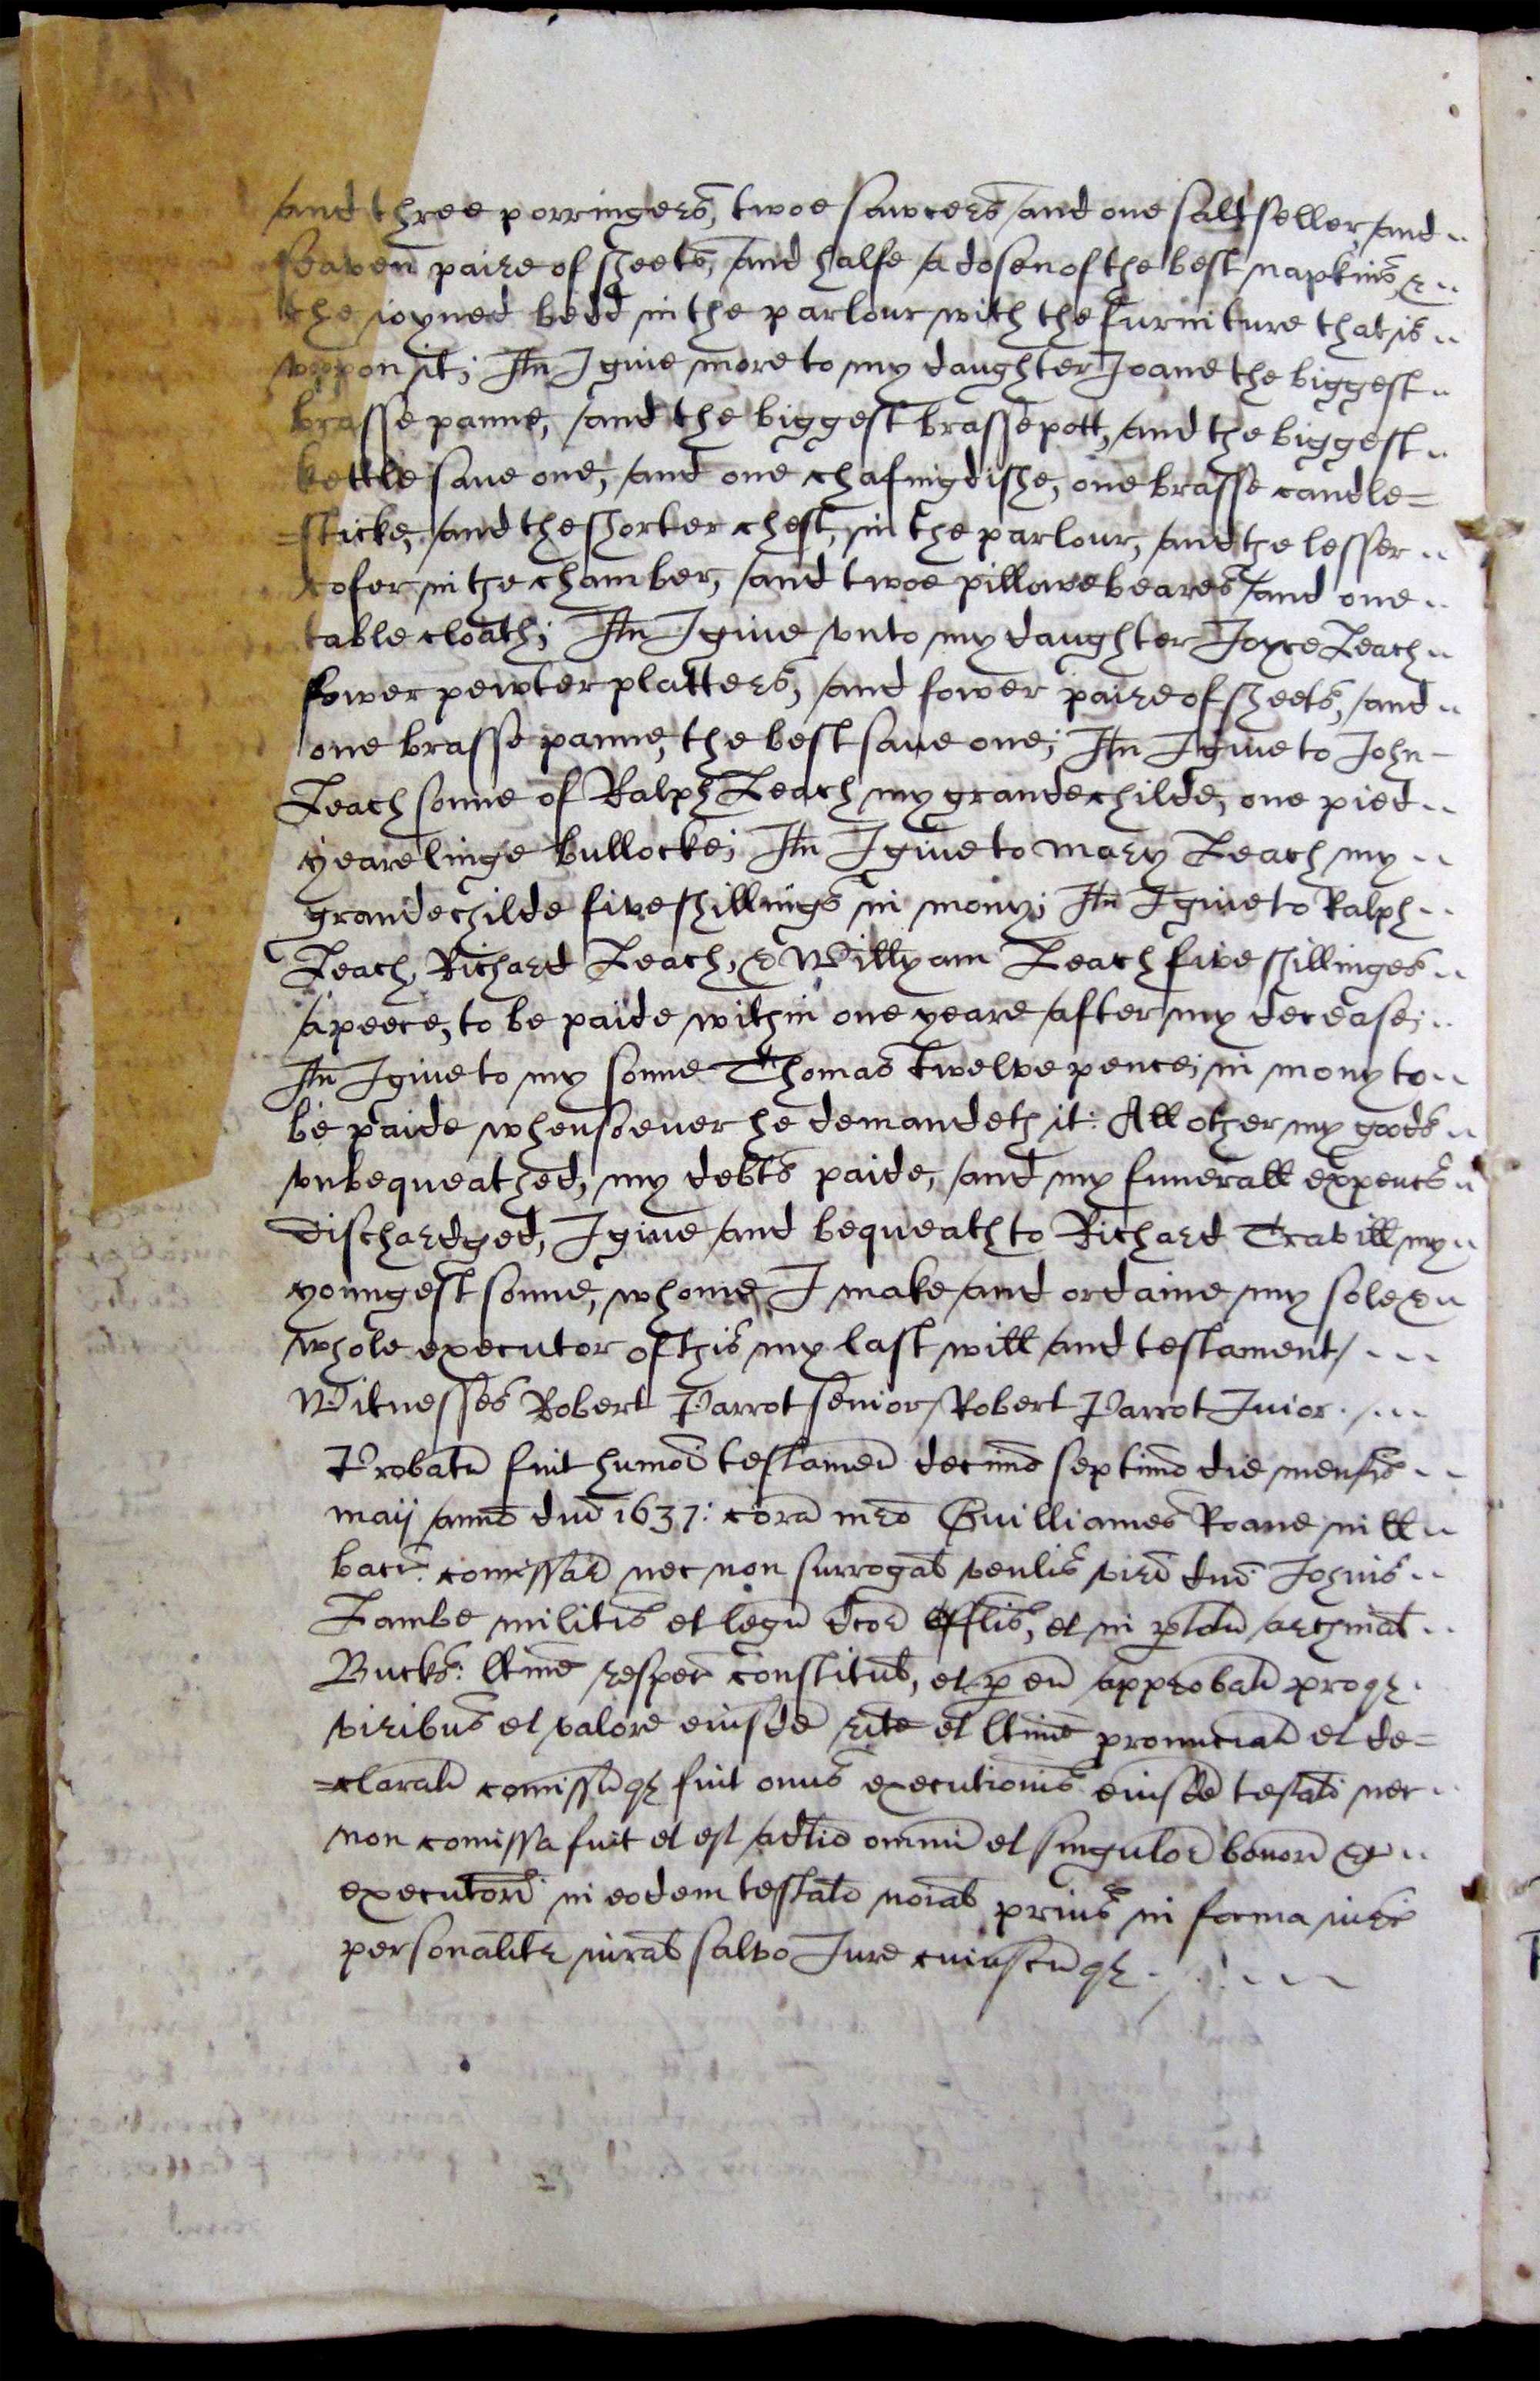 and three porringers, twoe sawcers and one saltseller, and
seaven paire of sheets, and halfe a dosen of the best napkins, &
the joyned bedd in the parlour with the furniture that is
vppon it; Itm I give more to my daughter Joane the biggest
brasse panne, and the biggest brasse pott, and the biggest
kettle save one, and one chafingdishe, one brasse candle=
=sticke, and the shorter chest, in the parlour, and the lesser
cofer in the chamber, and twoe pillowebeares and one
table cloath; Itm I give vnto my daughter Joyce Leach
fower pewter platters, and fower paire of sheets, and
one brasse panne, the best save one; Itm I give to John
Leach sonne of Ralph Leach my grandechilde, one pied
yearelinge bullocke; Itm I give to Mary Leach my
grandechilde five shillings in mony; Itm I give to Ralph
Leach, Richard Leach, & Willyam Leach five shillinges
apeece, to be paide within one yeare after my decease;
Itm I give to my sonne Thomas twelve pence; in mony to
be paide whensoever he demandeth it: All other my goods
vnbequeathed, my debts paide, and my funerall expences
dischardged, I give and bequeath to Richard Travill my
youngest sonne, whome I make and ordaine my sole &
whole executor of this my last will and testament/
Witnesses Robert Parrot senior, Robert Parrot Junior.
Probatu fuit humoi testamen decimo septimo die mensis
maij anno dni 1637: cora mro Guilliames Roane in ll
bacc: comissar nec non surrogat venlis viri dni Johnis
Lambe militis et legu dcor offlis, et in p totu archinat
Bucks: ltime respec constitut, et p eu approbatu proqz
viribus et valore eiusde rite et ltime pronunciatu et de=
=claratu comissuqz fuit onus executionis eiusde testati nec
non comissa fuit et est adtio omniu et singulor bonor &c
executori in eodem testato noiat prius in forma iuris
personaliter iurat salvo Jure cuiuscuqz